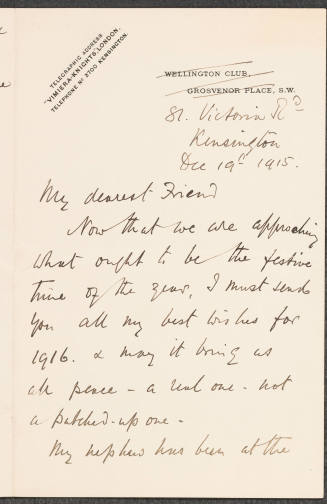 TELEGRAPHIC ADDRESS
"VIMIERA-KNIGHTS, LONDON.
TELEPHONE Nº 3700 KENSINGTON.
WELLINGTON CLUB,
GROSVENOR PLACE, S.W.
81. Victoria Rd
Kensington
Dec 19th 1915.
My dearest Friend
Now that we are approaching
what ought to be the festive
time of the year, I must send
you all my best wishes for
1916. & may it bring us
all peace - a real one - not
a patched-up one -
My nephew has been at the